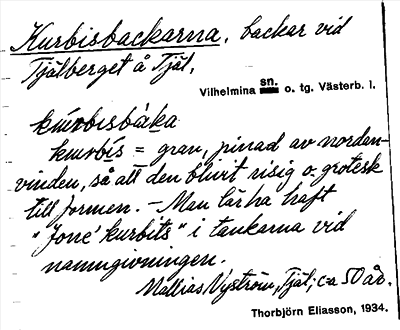 Kurbisbackarna, backar vid
Tjälberget å Tjäl,
Vilhelmina sn. o. tg. Västerb. l.
kurbisbàka
kurbís = gran, pinad av nordan-
vinden, så att den blivit risig o. grotesk
till formen. – Man lär ha haft
"Jone' kurbits" i tankarna vid
namngivningen.
Mattias Nyström, Tjäl, ca 50 år.
Thorbjörn Eliasson, 1934.